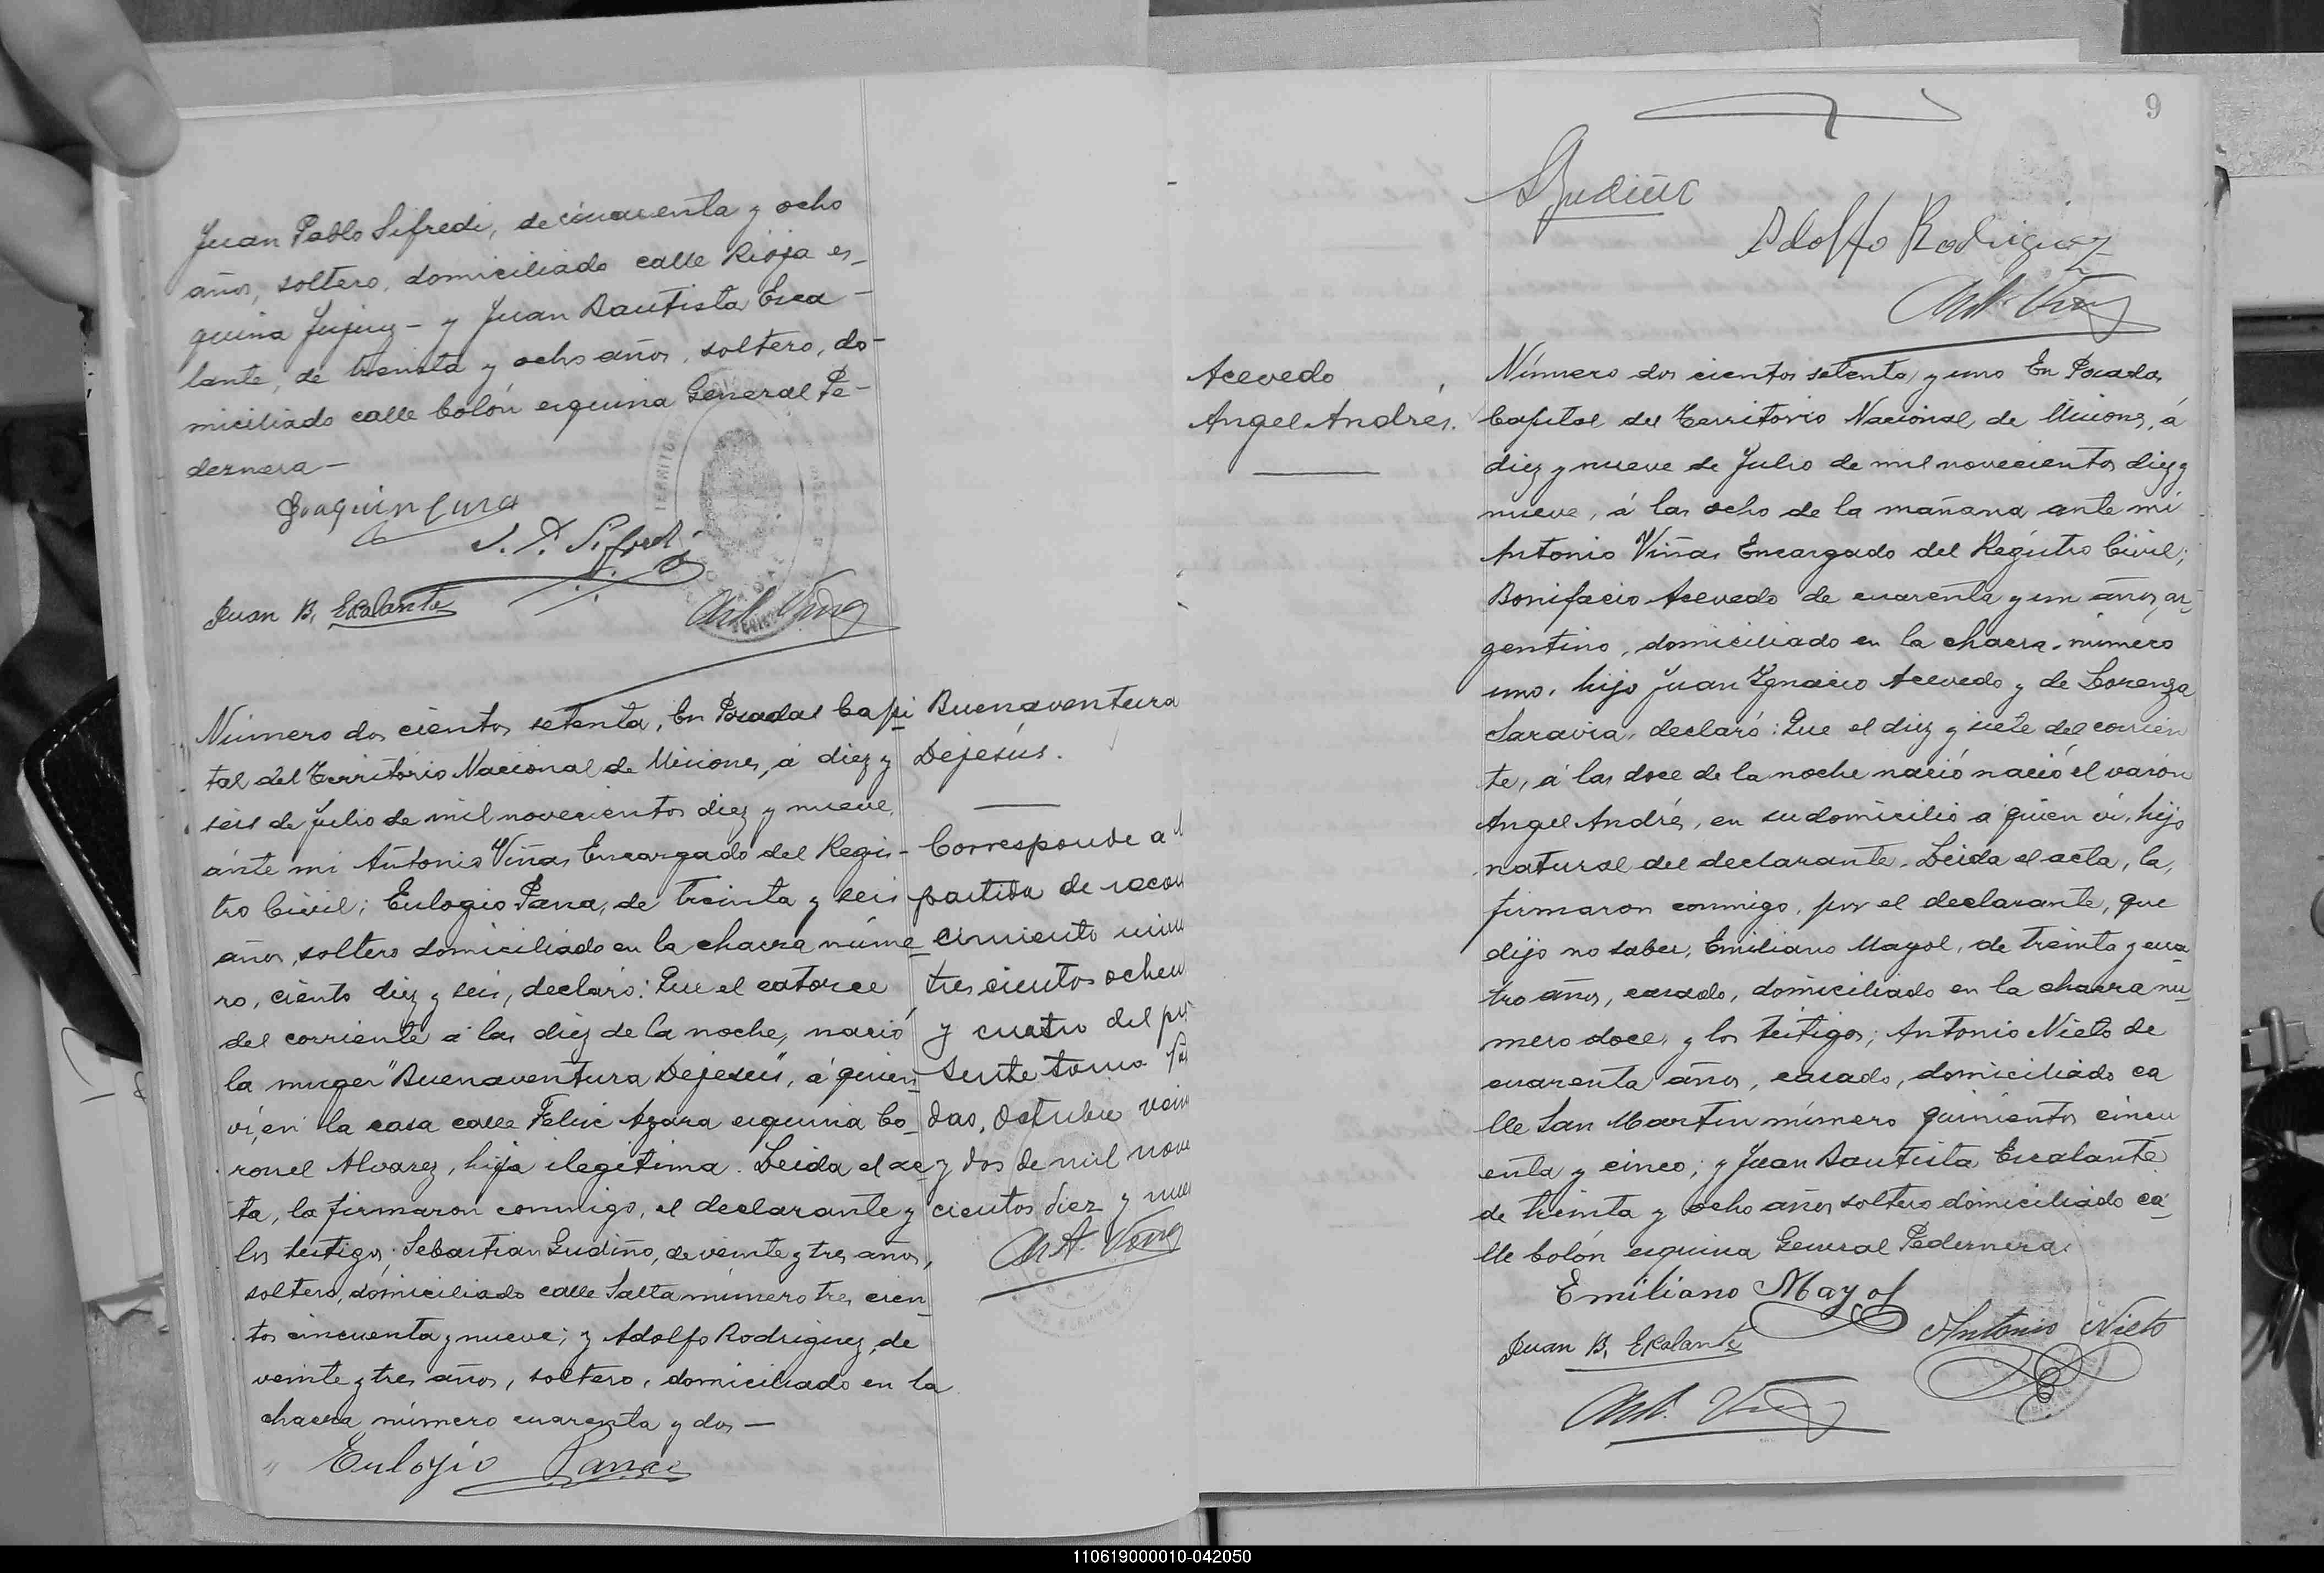 Juan Pablo Sifredi, de cincuenta y ocho
años, soltero, domiciliado calle Rioja es-
quina Jujuy - y Juan Bautista Esca-
lante, de treinta y ocho años, soltero, do-
miciliado calle Colón esquina General Pe-
dernera -
Joaquin Cura
J. P. Sifredi
Juan B. Escalante
Ant. Viñas
Número dos cientos setenta, En Posadas Capi-
tal del Territorio Nacional de Misiones, á diez y
seis de Julio de mil novecientos diez y nueve,
ánte mi Antonio Viñas Encargado del Regis-
tro Civil; Eulogio Parra, de treinta y seis
años, soltero domiciliado en la chacra núme-
ro, ciento diez y seis, declaró: Que el catorce
del corriente á las diez de la noche, nació
la muger "Buenaventura Dejesús", á quien
ví, en la casa calle Felix Azara esquina Co-
ronel Alvarez, hija ilegitima. Leida el ac-
ta, la firmaron conmigo, el declarante y
los testigos; Sebastian Gudiño, de veinte y tres años,
soltero, domiciliado calle Salta número tres cien-
tos cincuenta y nueve; y Adolfo Rodriguez, de
veinte y tres años, soltero, domiciliado en la
chacra número cuarenta y dos -
Eulogio Parra
Buenaventura
Dejesús.
Corresponde a
partida de recon
cimiento
tres cientos ochen
y cuatro del pre
sente tomo
das, Octubre vein
y dos de mil nove
cientos diez y nue
Ant. Viñas
9
S Gudiño
Adolfo Rodriguez
Ant. Viñas
Acevedo
Angel Andrés.
Número dos cientos setenta y uno En Posadas
Capital del Territorio Nacional de Misiones, á
diez y nueve de Julio de mil novecientos diez y
nueve, á las ocho de la mañana ante mi
Antonio Viñas Encargado del Registro Civil;
Bonifacio Acevedo de cuarenta y un años, ar-
gentino, domiciliado en la chacra número
uno, hijo Juan Ygnacio Acevedo y de Lorenza
Saravia, declaró: Que el diez y siete del corrien
te, á las doce de la noche nació nació el varon
Angel Andrés, en su domicilio á quien ví, hijo
natural del declarante. Leida el acta, la
firmaron conmigo, por el declarante, que
dijo no saber, Emiliano Mayol, de treinta y cua-
tro años, casado, domiciliado en la chacra nu-
mero doce, y los testigos; Antonio Nieto de
cuarenta años, casado, domiciliado ca
lle San Martin número quinientos cincu
enta y cinco; y Juan Bautista Escalante
de treinta y ocho años soltero domiciliado ca-
lle Colón esquina General Pedernera.
Emiliano Mayol
Juan B. Escalante
Antonio Nieto
Ant. Viñas
110619000010-042050